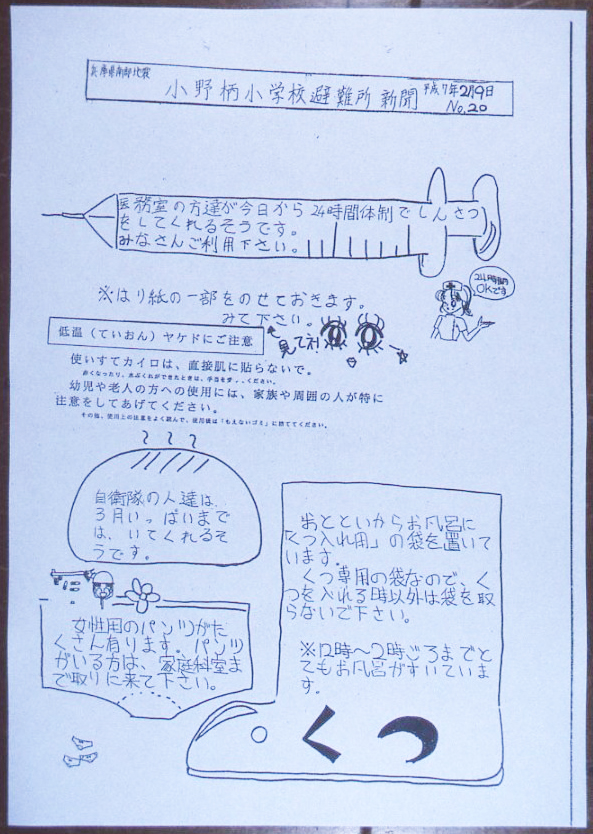 兵庫県南部地震
小野柄小学校避難所新聞
平成7年2月9日
No.20
医務室の方達が今日から24時間体制でしんさつ
をしてくれるそうです。
みなさんご利用下さい。
24時間
OKです
※はり紙の一部をのせておきます。
みて下さい。
見てネ!
低温(ていおん)ヤケドにご注意
使いすてカイロは、直接肌に貼らないで。
赤くなったり、水ぶくれができたときは、手当を
ください。
幼児や老人の方への使用には、家族や周囲の人が特に
注意をしてあげてください。
その他、使用上の注意をよく読んで、使用後は「もえないゴミ」に捨ててください。
自衛隊の人達は、
3月いっぱいまで
は、いてくれるそ
うです。
おとといからお風呂に
「くつ入れ用」の袋を置いて
います。
くつ専用の袋なので、く
つを入れる時以外は袋を取
らないで下さい。
※12時〜2時ごろまでと
てもお風呂がすいていま
す。
女性用のパンツがた
くさん有ります。パンツ
がいる方は、家庭科室ま
で取りに来て下さい。
くつ